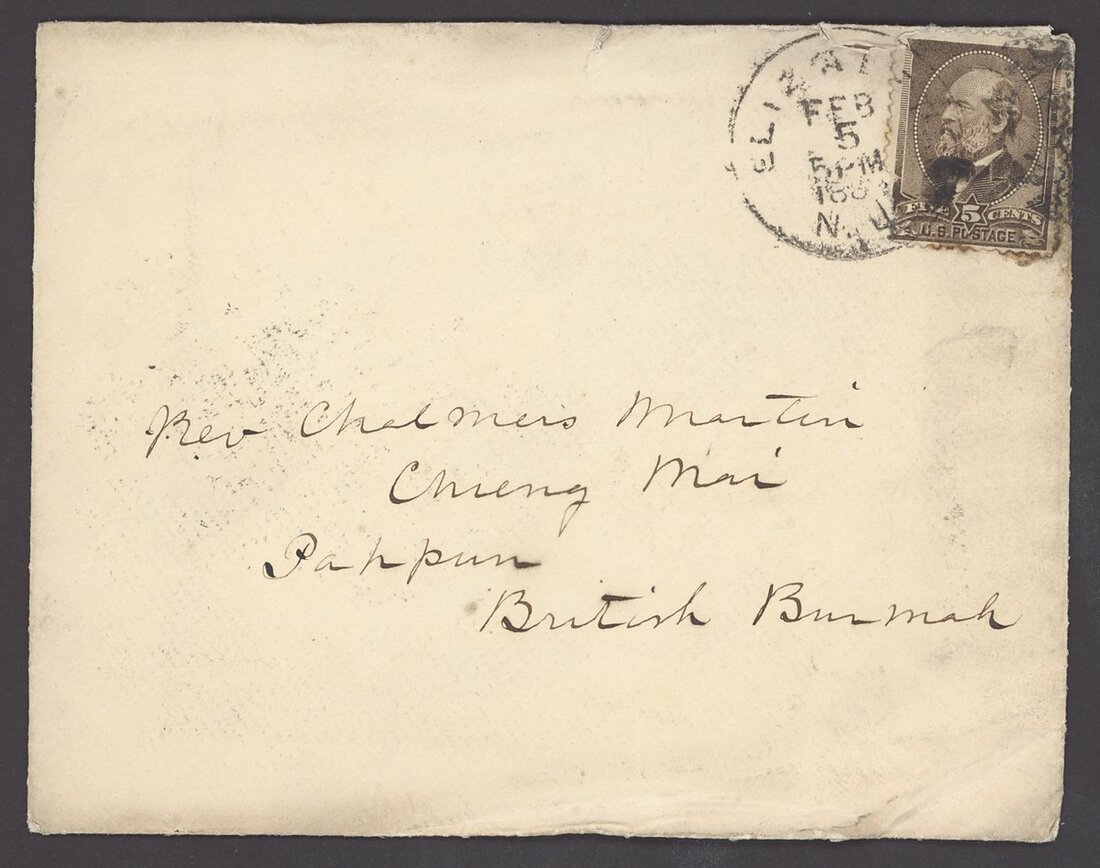 FEB
5
5 PM
N.J.
FIVE 5 CENTS
U.S. POSTAGE
Rev Chalmers Martin
Chieng Mai
Pahpun
British Burmah